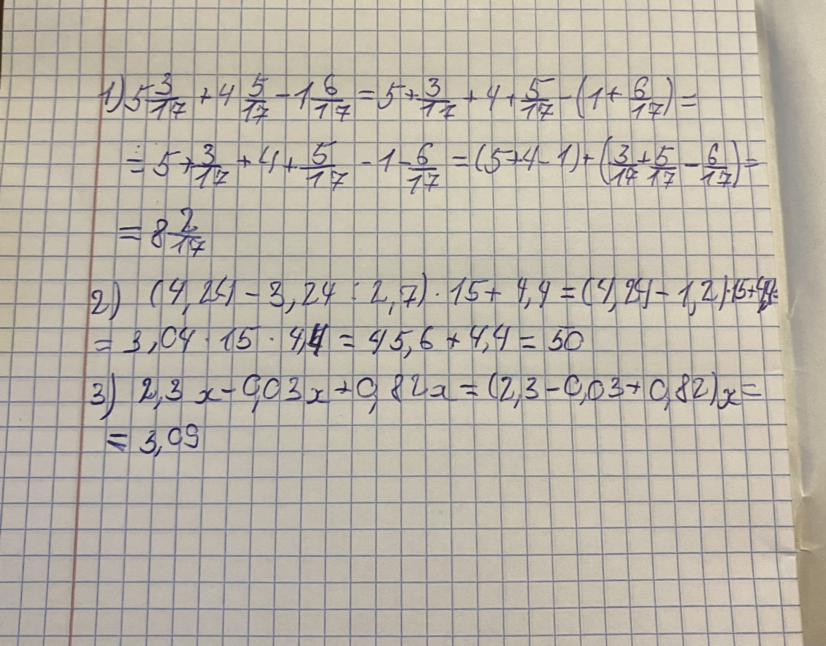 1) 5 3/17 + 4 5/17 - 1 6/17 = 5 + 3/17 + 4 + 5/17 - (1 + 6/17) =
= 5 + 3/17 + 4 + 5/17 - 1 - 6/17 = (5+4-1) + (3/17 + 5/17 - 6/17) =
= 8 2/17
2) (4,24 - 3,24 : 2,7) · 15 + 4,4 = (4,24 - 1,2) · 15 + 4,4 =
= 3,04 · 15 · 4,4 = 45,6 + 4,4 = 50
3) 2,3x - 0,03x + 0,82x = (2,3 - 0,03 + 0,82)x =
= 3,09